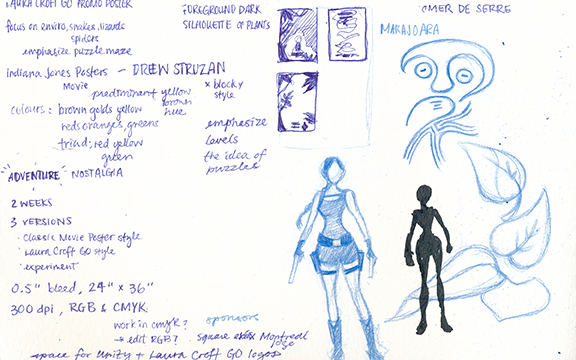 LAURA CROFT GO PROMO POSTER
focus on enviro, snakes, lizards
spiders
emphasize puzzle maze
Indiana Jones Posters - DREW STRUZAN
Movie
predominant yellow
brown
hue
colours: brown golds yellow
reds oranges, greens
triad: red yellow
green
ADVENTURE NOSTALGIA
2 WEEKS
3 VERSIONS
· Classic Movie Poster style
· Laura Croft GO style
· experiment
0.5" bleed, 24" x 36"
300 dpi, RGB & CMYK
work in cmyk?
→ edit RGB?
space for Unity + Laura Croft GO logos
sponsors
square Montreal
logo
FOREGROUND DARK
SILHOUETTE of PLANTS
x blocky
style
emphasize
levels
the idea of
puzzles
OMER DE SERRE
MARAJOARA